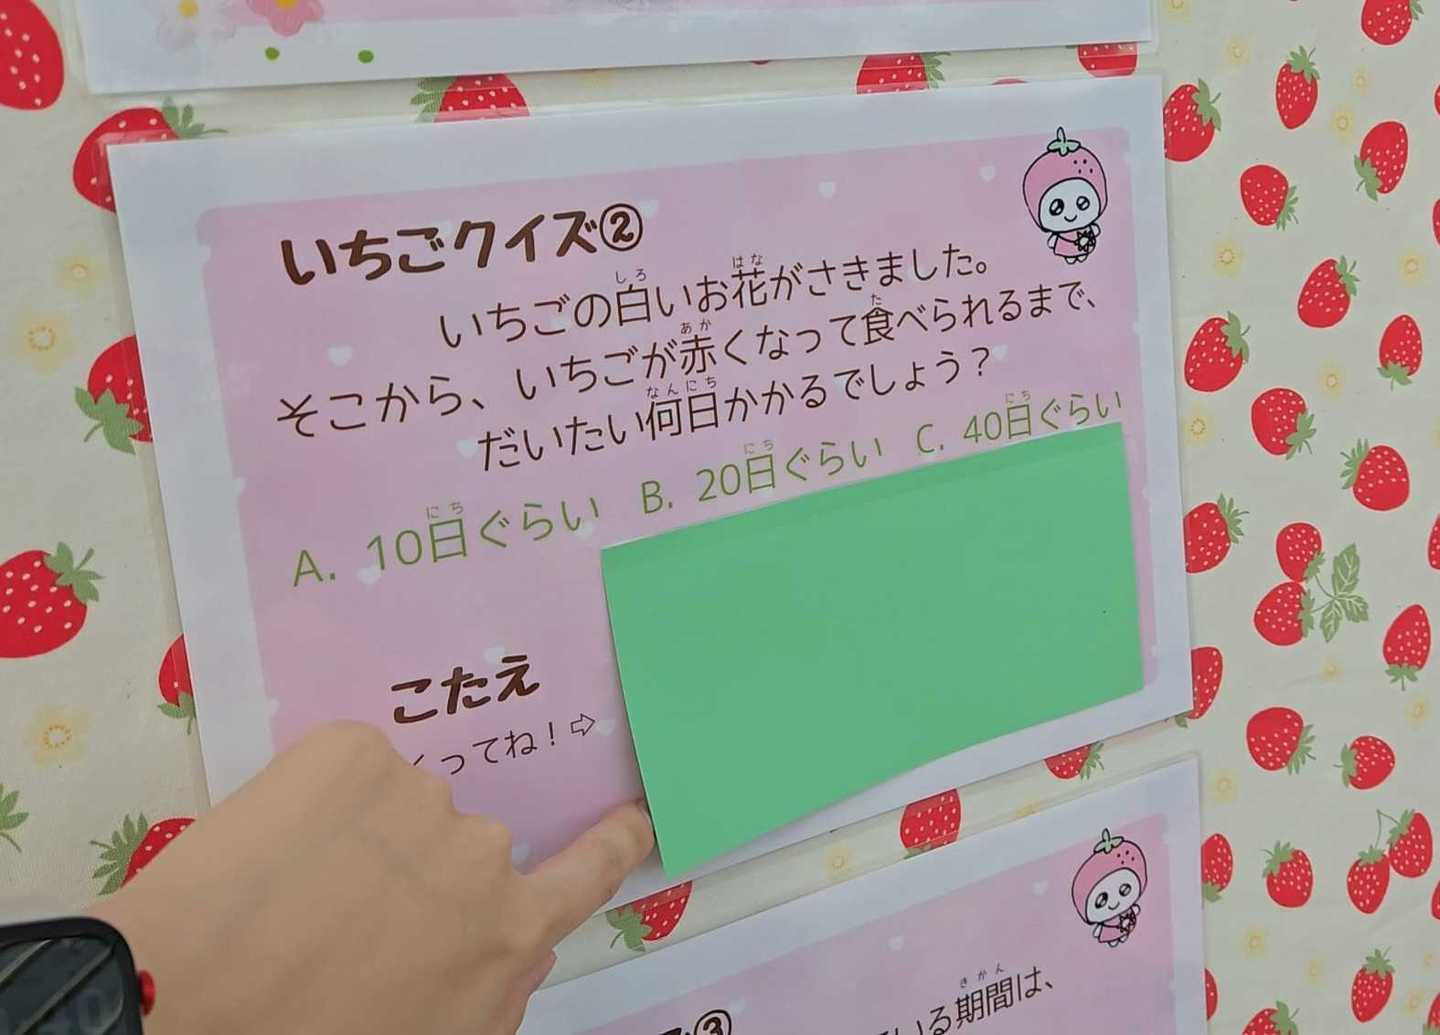 いちごクイズ②
いちごの白いお花がさきました。
そこから、いちごが赤くなって食べられるまで、
だいたい何日かかるでしょう？
A. 10日ぐらい B. 20日ぐらい C. 40日ぐらい
こたえ
くってね！⇨
③
いる期間は、